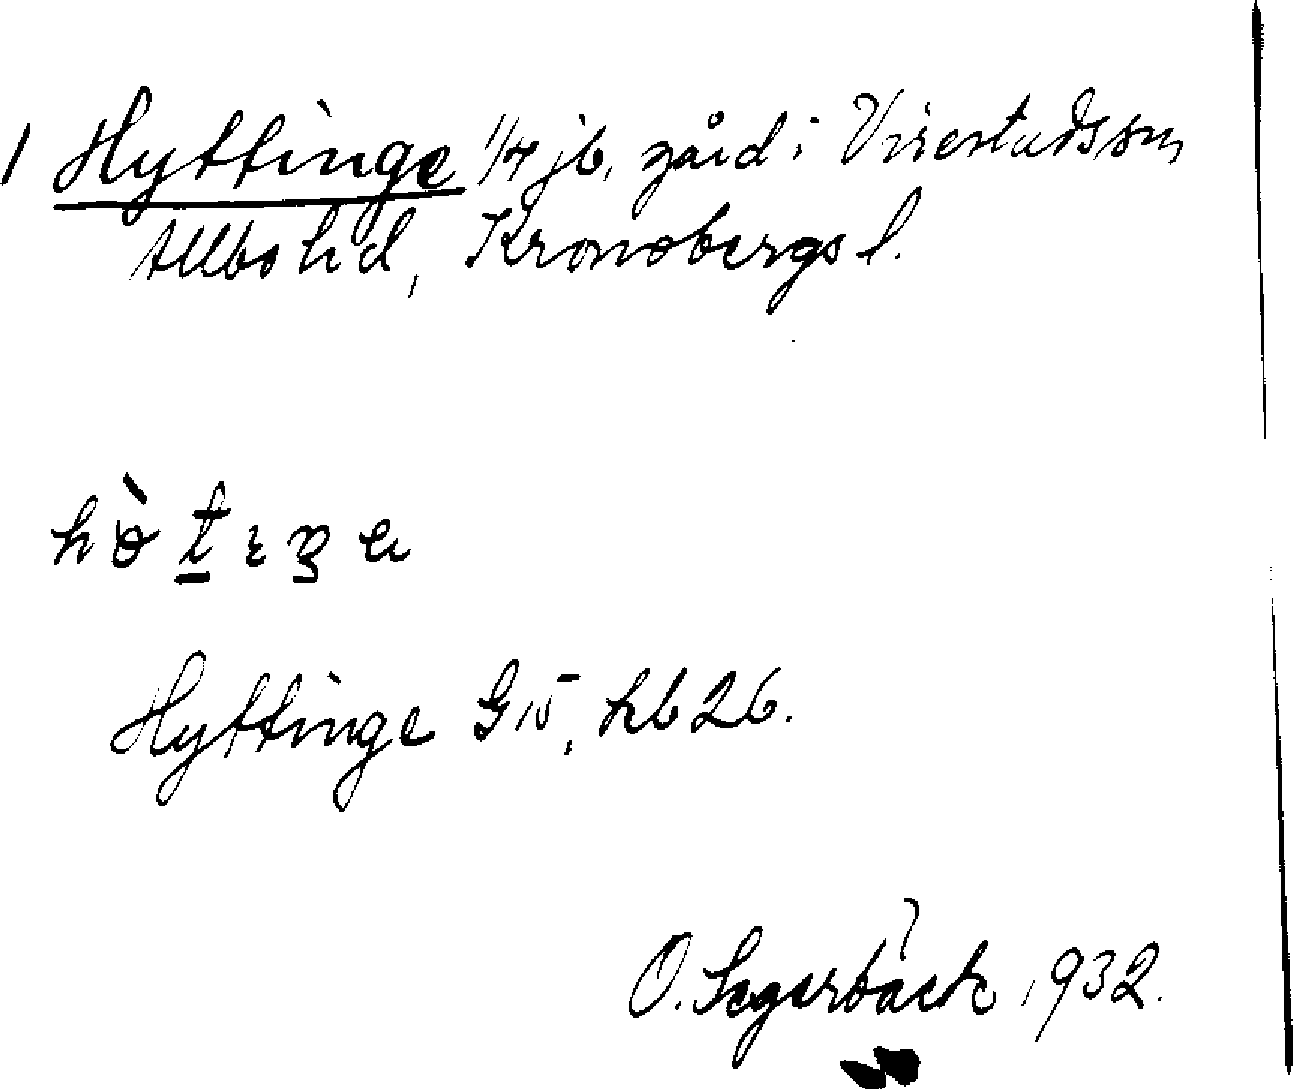 1 Hyttinge 1/4 jb, gård i Virestads sn
Allbo hd, Kronobergs l.
Hyttinge G15, hb 26.
O. Segerbäck 1932.